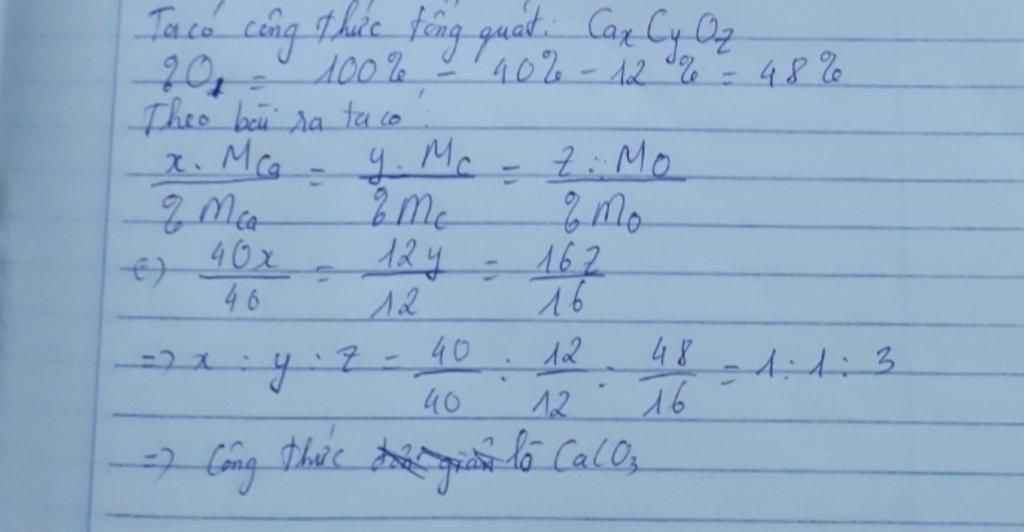 Ta có công thức tổng quát: CaxCyOz
%O = 100% - 40% - 12% = 48%
Theo bài ra ta có:
x. MCa / %MCa = y. MC / %MC = z. MO / %MO
(=) 40x / 40 = 12y / 12 = 16z / 16
=> x : y : z = 40/40 : 12/12 : 48/16 = 1 : 1 : 3
=> Công thức đơn giản là CaCO3